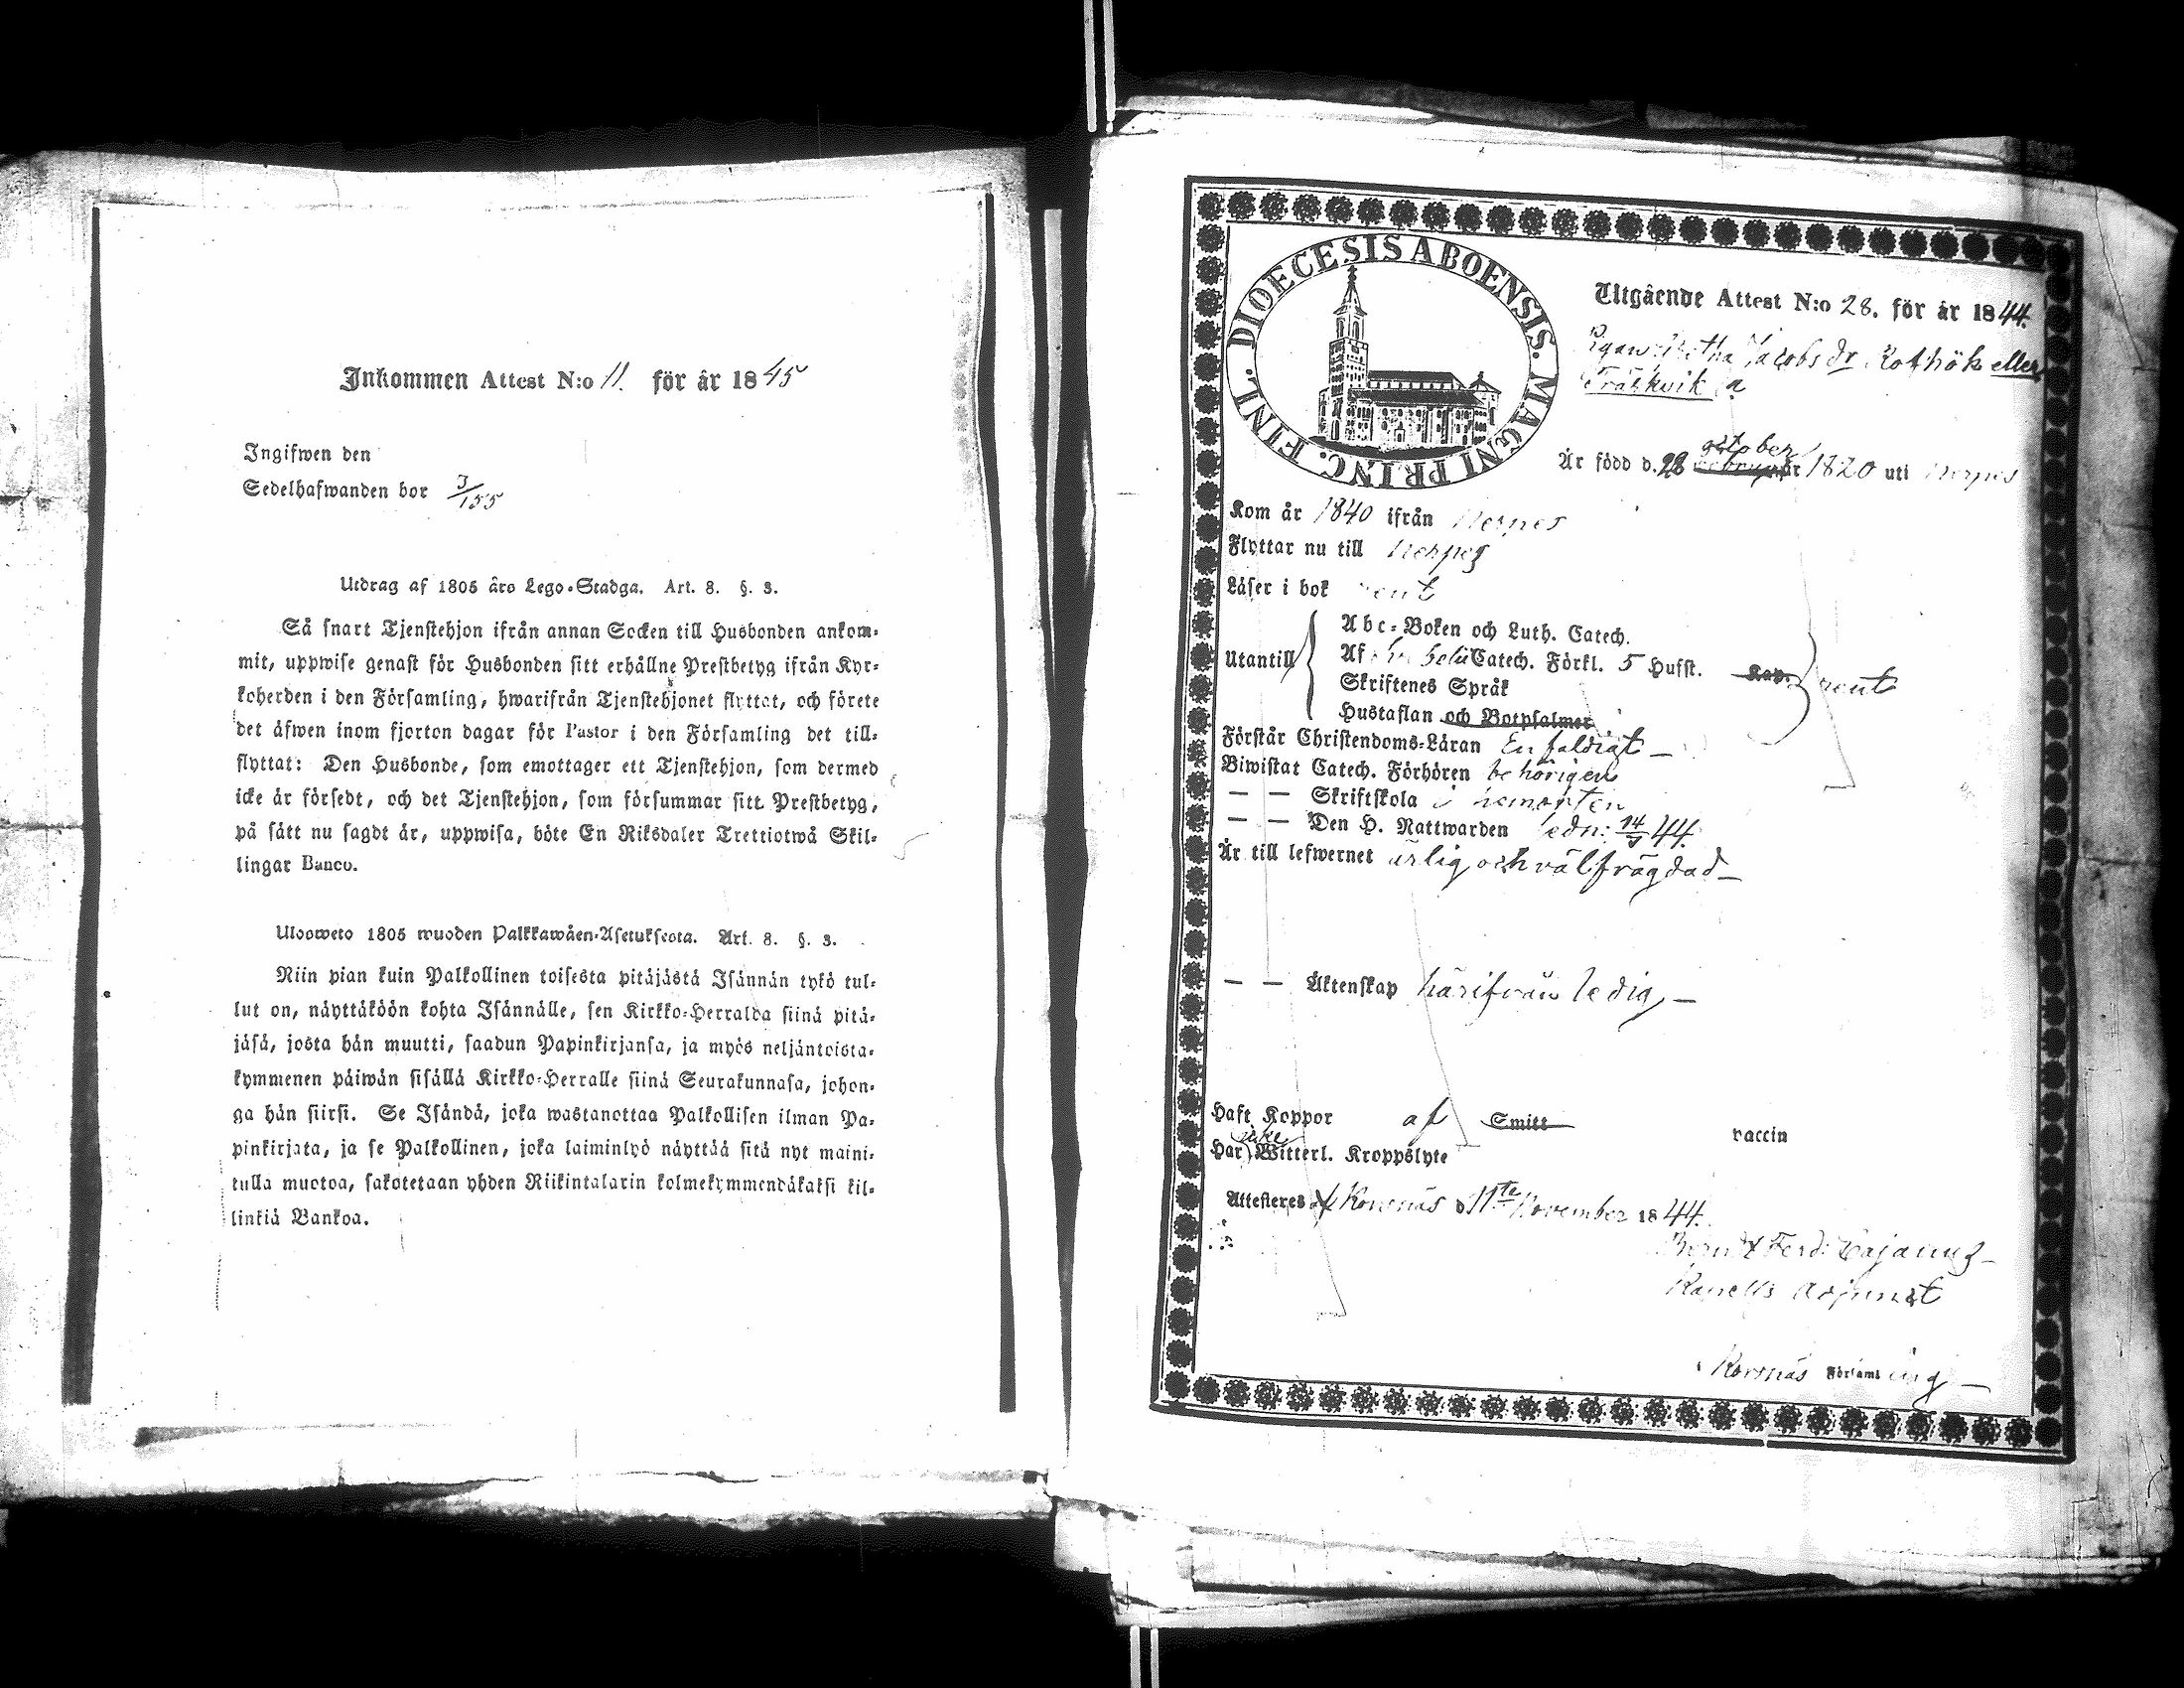 Inkommen Attest N:o 11. för år 1845
Ingifwen den
Sedelhafwanden bor 3/155
Utdrag af 1805 års Lego-Stadga. Art. 8. §. 3.
Så snart Tjenstehjon ifrån annan Socken till Husbonden ankom-
mit, uppwise genast för Husbonden sitt erhållne Prestbetyg ifrån Kyr-
koherden i den Församling, hwarifrån Tjenstehjonet flyttat, och förete
det äfwen inom fjorton dagar för Pastor i den Församling det till-
flyttat: Den Husbonde, som emottager ett Tjenstehjon, som dermed
icke är försedt, och det Tjenstehjon, som försummar sitt Prestbetyg,
på sätt nu sagdt är, uppwisa, böte En Riksdaler Trettiotwå Skil-
lingar Banco.
Ulosweto 1805 wuoden Palkkawäen-Asetuksesta. Art. 8. §. 3.
Niin pian kuin Palkollinen toisesta pitäjästä Isännän tykö tul-
lut on, näyttäköön kohta Isännälle, sen Kirkko-Herralda siinä pitä-
jäsä, josta hän muutti, saadun Papinkirjansa, ja myös neljäntoista-
kymmenen päiwän sisällä Kirkko-Herralle siinä Seurakunnasa, johon-
ga hän siirsi. Se Isändä, joka wastanottaa Palkollisen ilman Pa-
pinkirjata, ja se Palkollinen, joka laiminlyö näyttää sitä nyt maini-
tulla muotoa, sakotetaan yhden Riikintalarin kolmekymmendäkaksi kil-
linkiä Bankoa.
DIOECESIS ABOENSIS. MAGNI PRINC. FINL.
Utgående Attest N:o 28. för år 1844.
Jacobs dr Rofhök eller
Träskvik
october
Är född d. 28 februar 1820 uti Nerpes
Kom år 1840 ifrån Nerpes
Flyttar nu till Nerpes
Läser i bok rent
Abc-Boken och Luth. Catech.
Utantill Af Catech. Förkl. 5 Hufst. Kap. rent
Skriftenes Språk
Hustaflan och Botpsalmer
Förstår Christendoms-Läran Enfaldigt
Biwistat Catech. Förhören behörigen
— — Skriftskola i hemorten
— — Den H. Nattwarden sedn: 14/ 44.
Är till lefwernet ärlig och välfrägdad
— — Äktenskap härifrån ledig
Haft Koppor af Smitt vaccin
icke
Har Witterl. Kroppslyte
Attesteras af Korsnäs d 11te November 1844.
Berndt Ferd: Cajanus
Kapells Adjunct
Korsnäs Församling